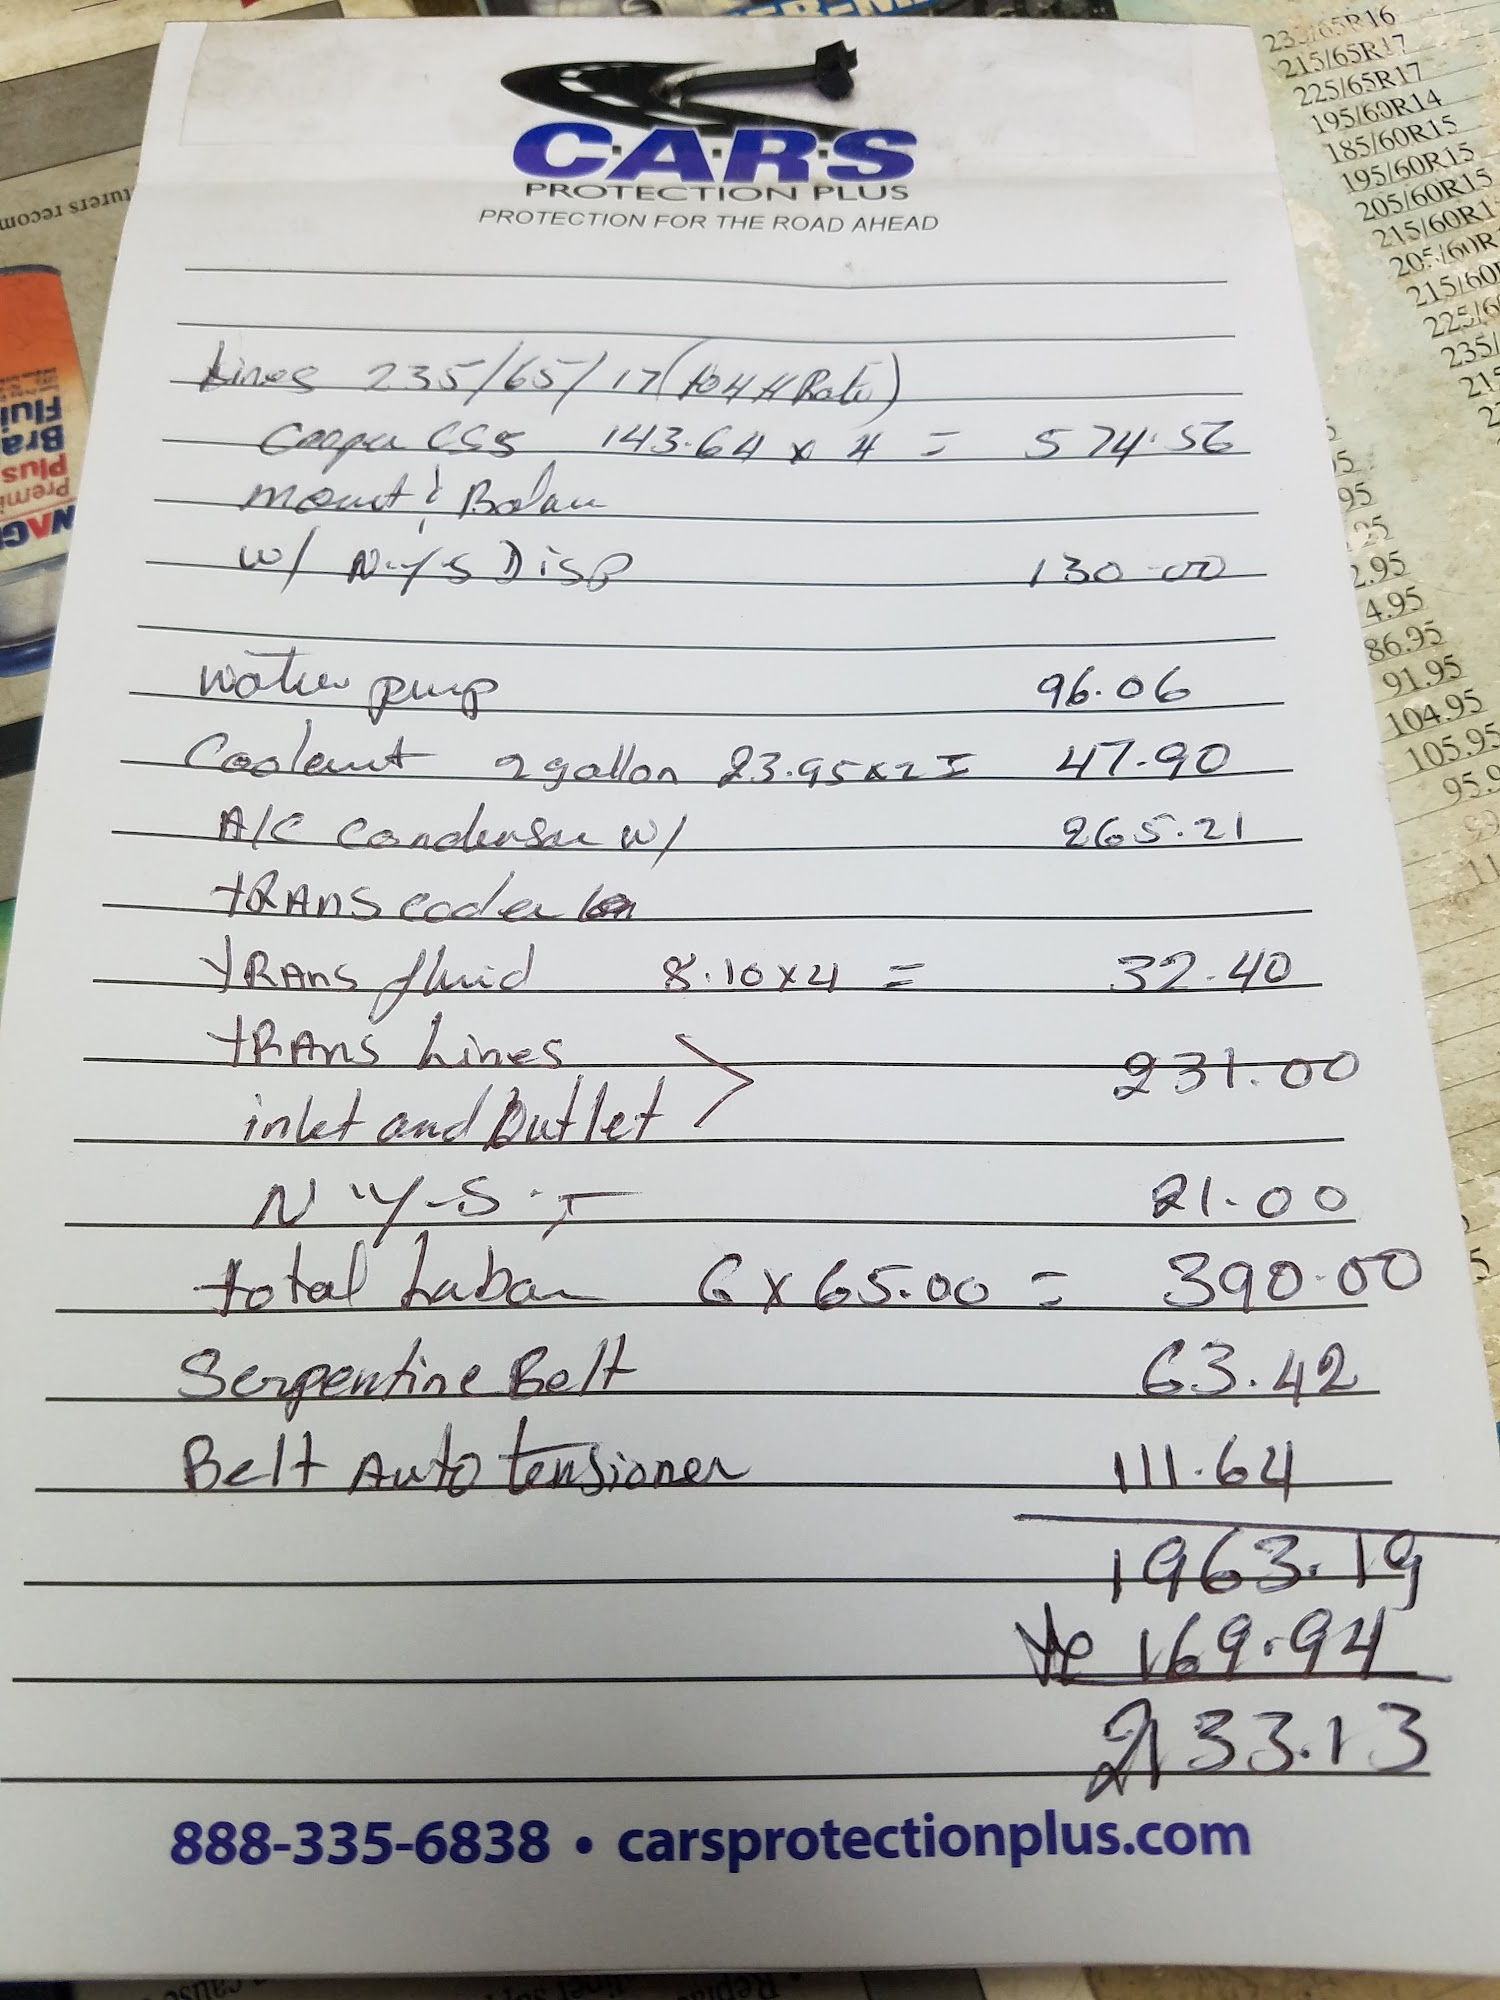 C.A.R.S
PROTECTION PLUS
PROTECTION FOR THE ROAD AHEAD
tires 235/65/17 (104 H Rate)
Cooper CS5 143.64 x 4 = 574.56
mount & Balance
w/ N.Y.S Disp 130.00
Water pump 96.06
Coolant 2 gallon 23.95 x 2 = 47.90
A/C Condenser w/ 265.21
TRANS cooler
TRANS fluid 8.10 x 4 = 32.40
TRANS Lines
231.00
inlet and Outlet
N.Y.S. I 21.00
total Labor 6 x 65.00 = 390.00
Serpentine Belt 63.42
Belt Auto tensioner 111.64
1963.19
169.94
2133.13
888-335-6838 • carsprotectionplus.com
215/65R17
225/65R17
195/60R14
185/60R15
195/60R15
205/60R15
215/60R1
205/60R
215/60
225/6
235/
215
95
2.95
4.95
86.95
91.95
104.95
105.95
95.9
turers recom
Brak
Flui
Plus
Premi
WAG